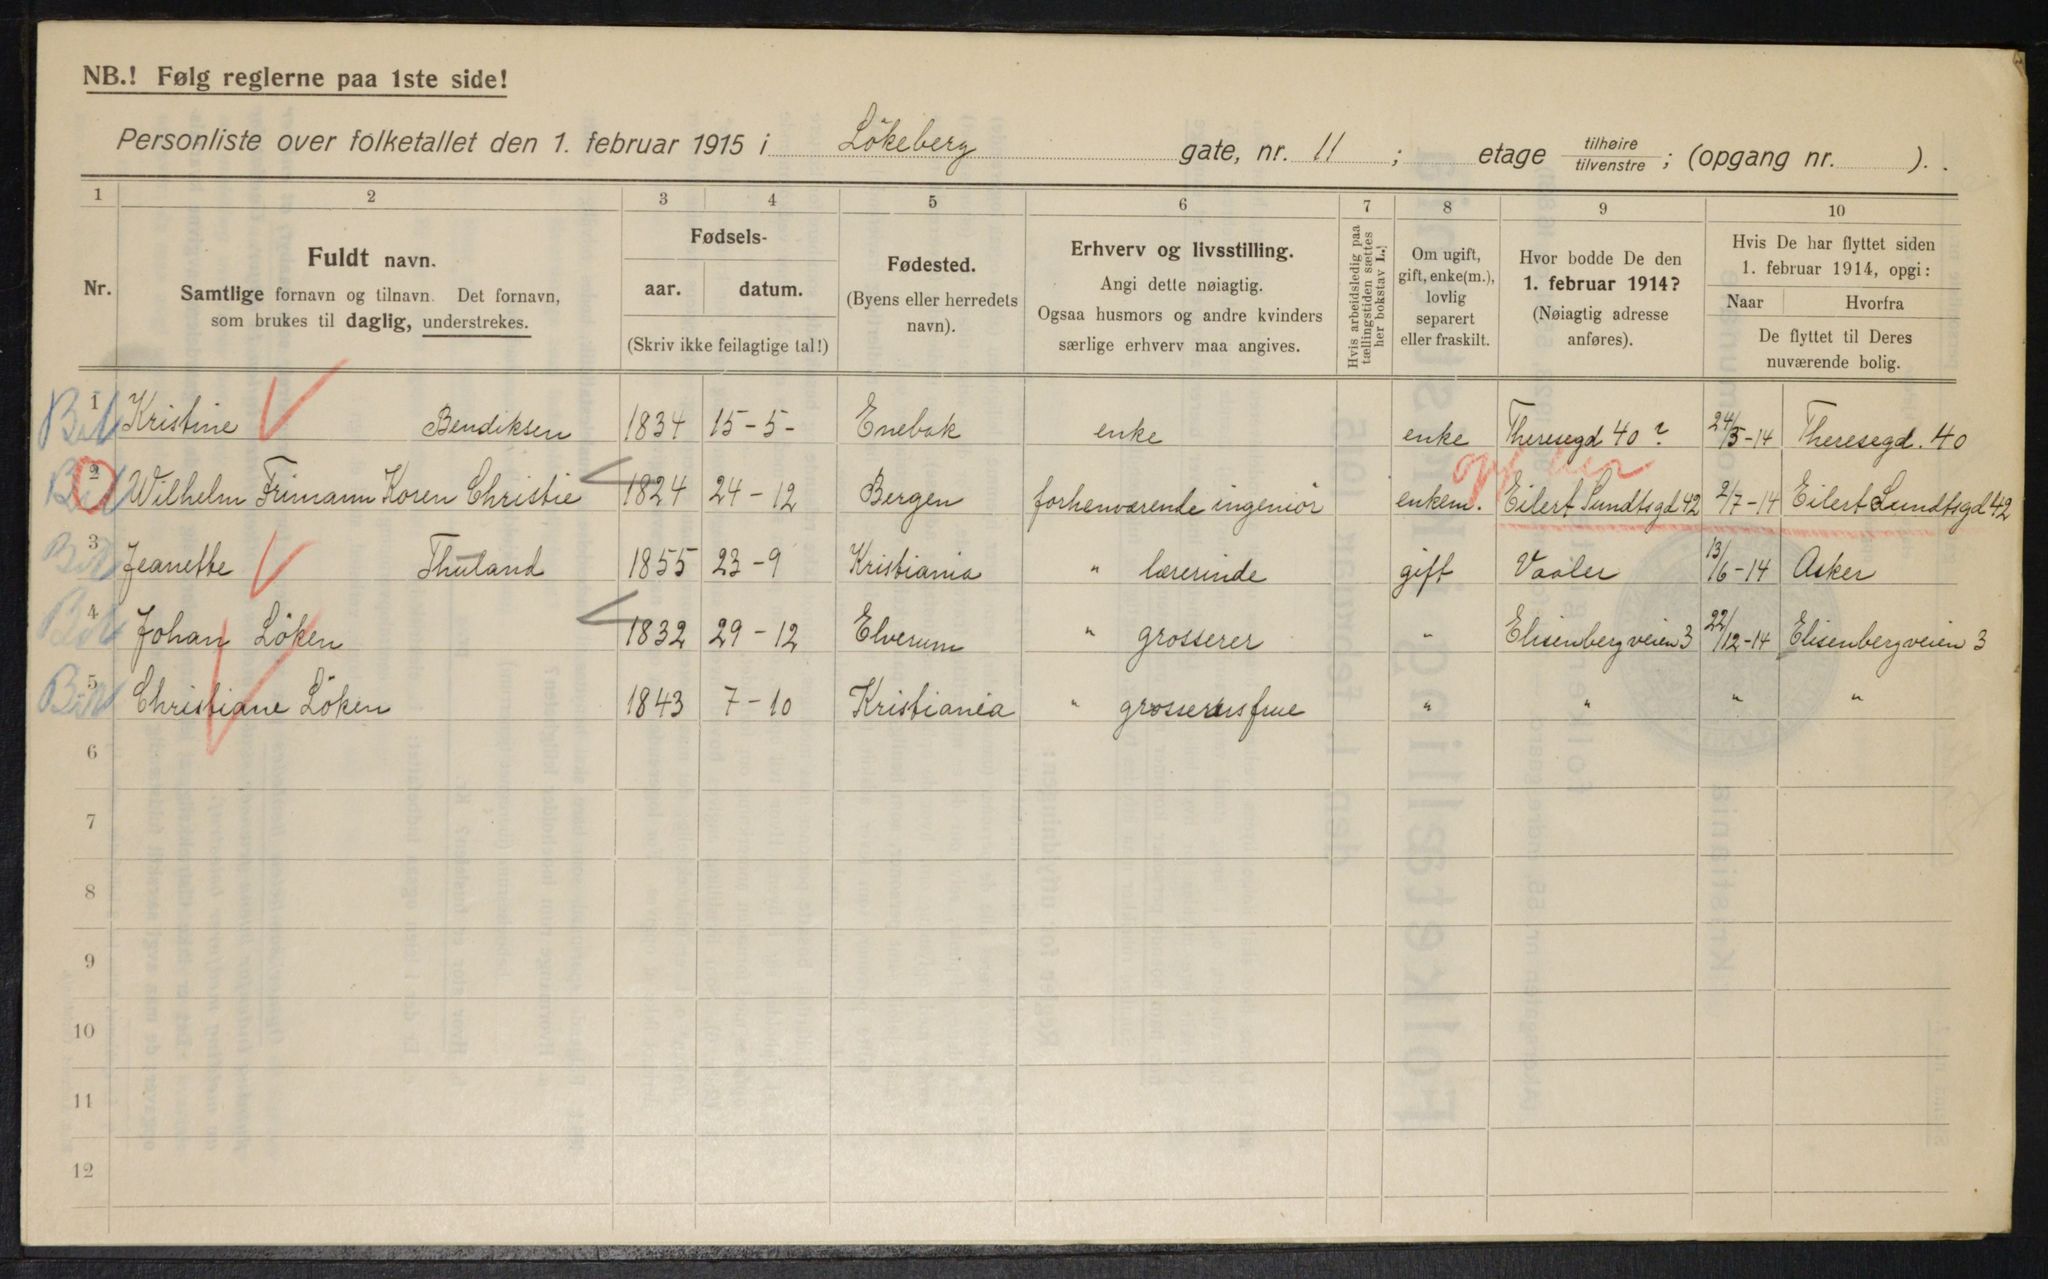 NB.! Følg reglerne paa 1ste side!
Personliste over folketallet den 1. februar 1915 i Lökeberg gate, nr. 11 ; etage tilhøire / tilvenstre ; (opgang nr. ).
1 2 3 4 5 6 7 8 9 10
Nr.
Fuldt navn.
Samtlige fornavn og tilnavn. Det fornavn,
som brukes til daglig, understrekes.
Fødsels-
aar. datum.
(Skriv ikke feilagtige tal!)
Fødested.
(Byens eller herredets
navn).
Erhverv og livsstilling.
Angi dette nøiagtig.
Ogsaa husmors og andre kvinders
særlige erhverv maa angives.
Hvis arbeidsledig paa
tællingstiden sættes
her bokstav L.
Om ugift,
gift, enke(m.),
lovlig
separert
eller fraskilt.
Hvor bodde De den
1. februar 1914?
(Nøiagtig adresse
anføres).
Hvis De har flyttet siden
1. februar 1914, opgi:
Naar Hvorfra
De flyttet til Deres
nuværende bolig.
1 Kristine Bendiksen 1834 15-5- Enebak enke enke Theresegd 40? 24/5-14 Theresegd. 40
2 Wilhelm Frimann Koren Christie 1824 24-12 Bergen forhenværende ingeniör enkem. Eilert Sundtsgd 42 2/7-14 Eilert Sundtsgd 42
3 Jeanette Thuland 1855 23-9 Kristiania " lærerinde gift Vaaler 13/6-14 Asker
4 Johan Löken 1832 29-12 Elverum " grosserer " Elisenbergveien 3 22/12-14 Elisenbergveien 3
5 Christiane Löken 1843 7-10 Kristiania " grosserersfrue " " " "
6
7
8
9
10
11
12